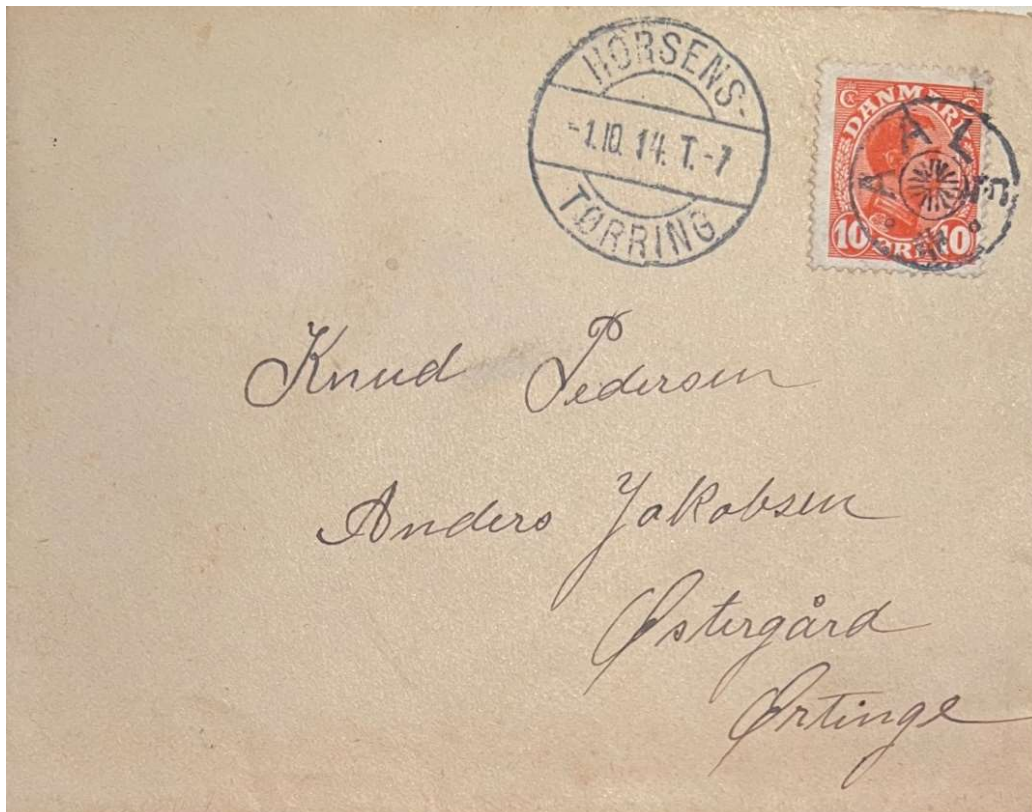 HORSENS-
-1.10.14. T.-7
TØRRING
DANMARK
AALE
10 ØRE 10
Knud Pedersen
Anders Jakobsen
Østergård
Ørtinge